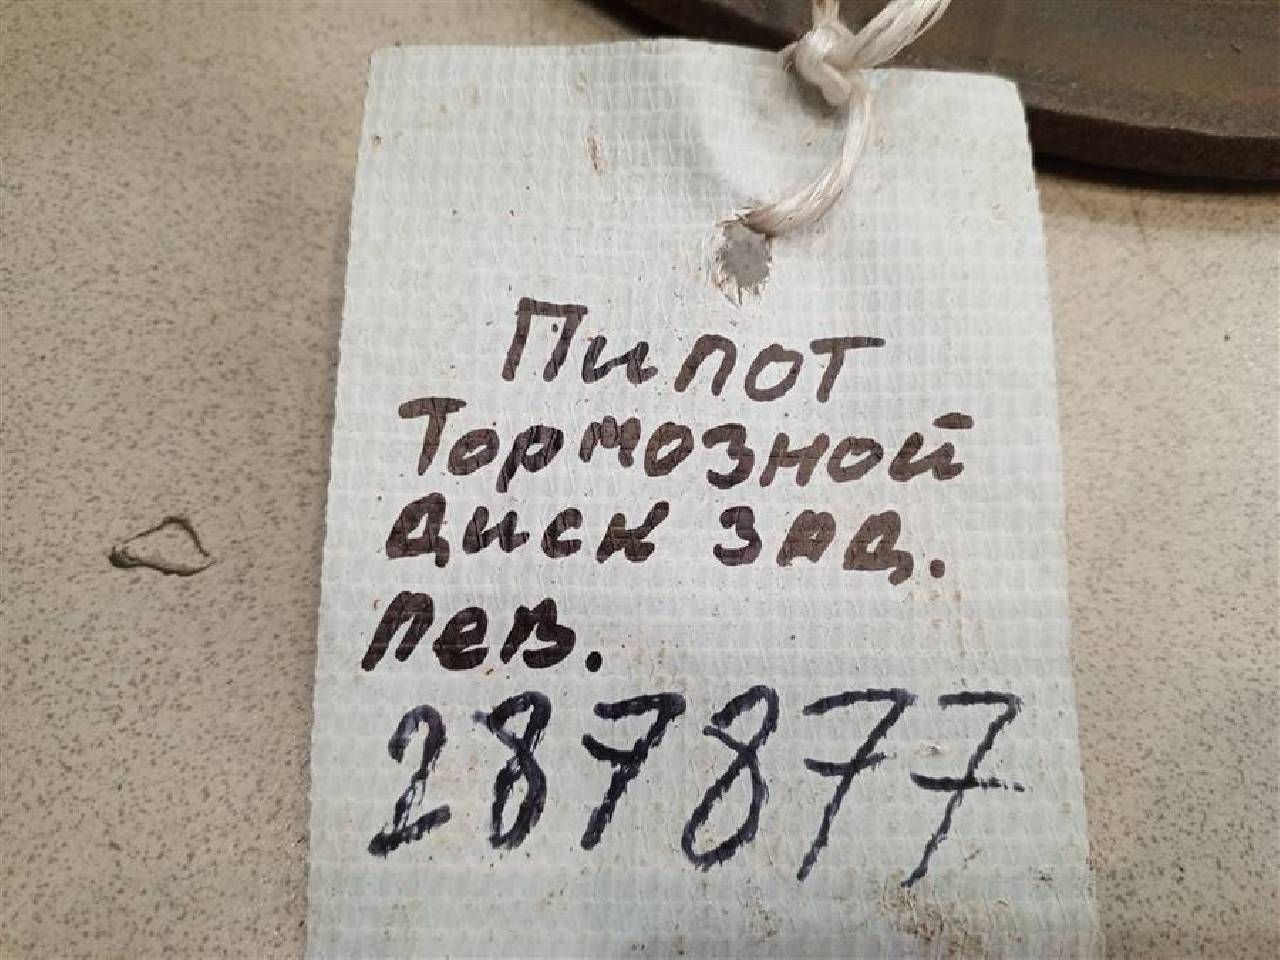 Пипот
Тормозной
диск зад.
лев.
287877